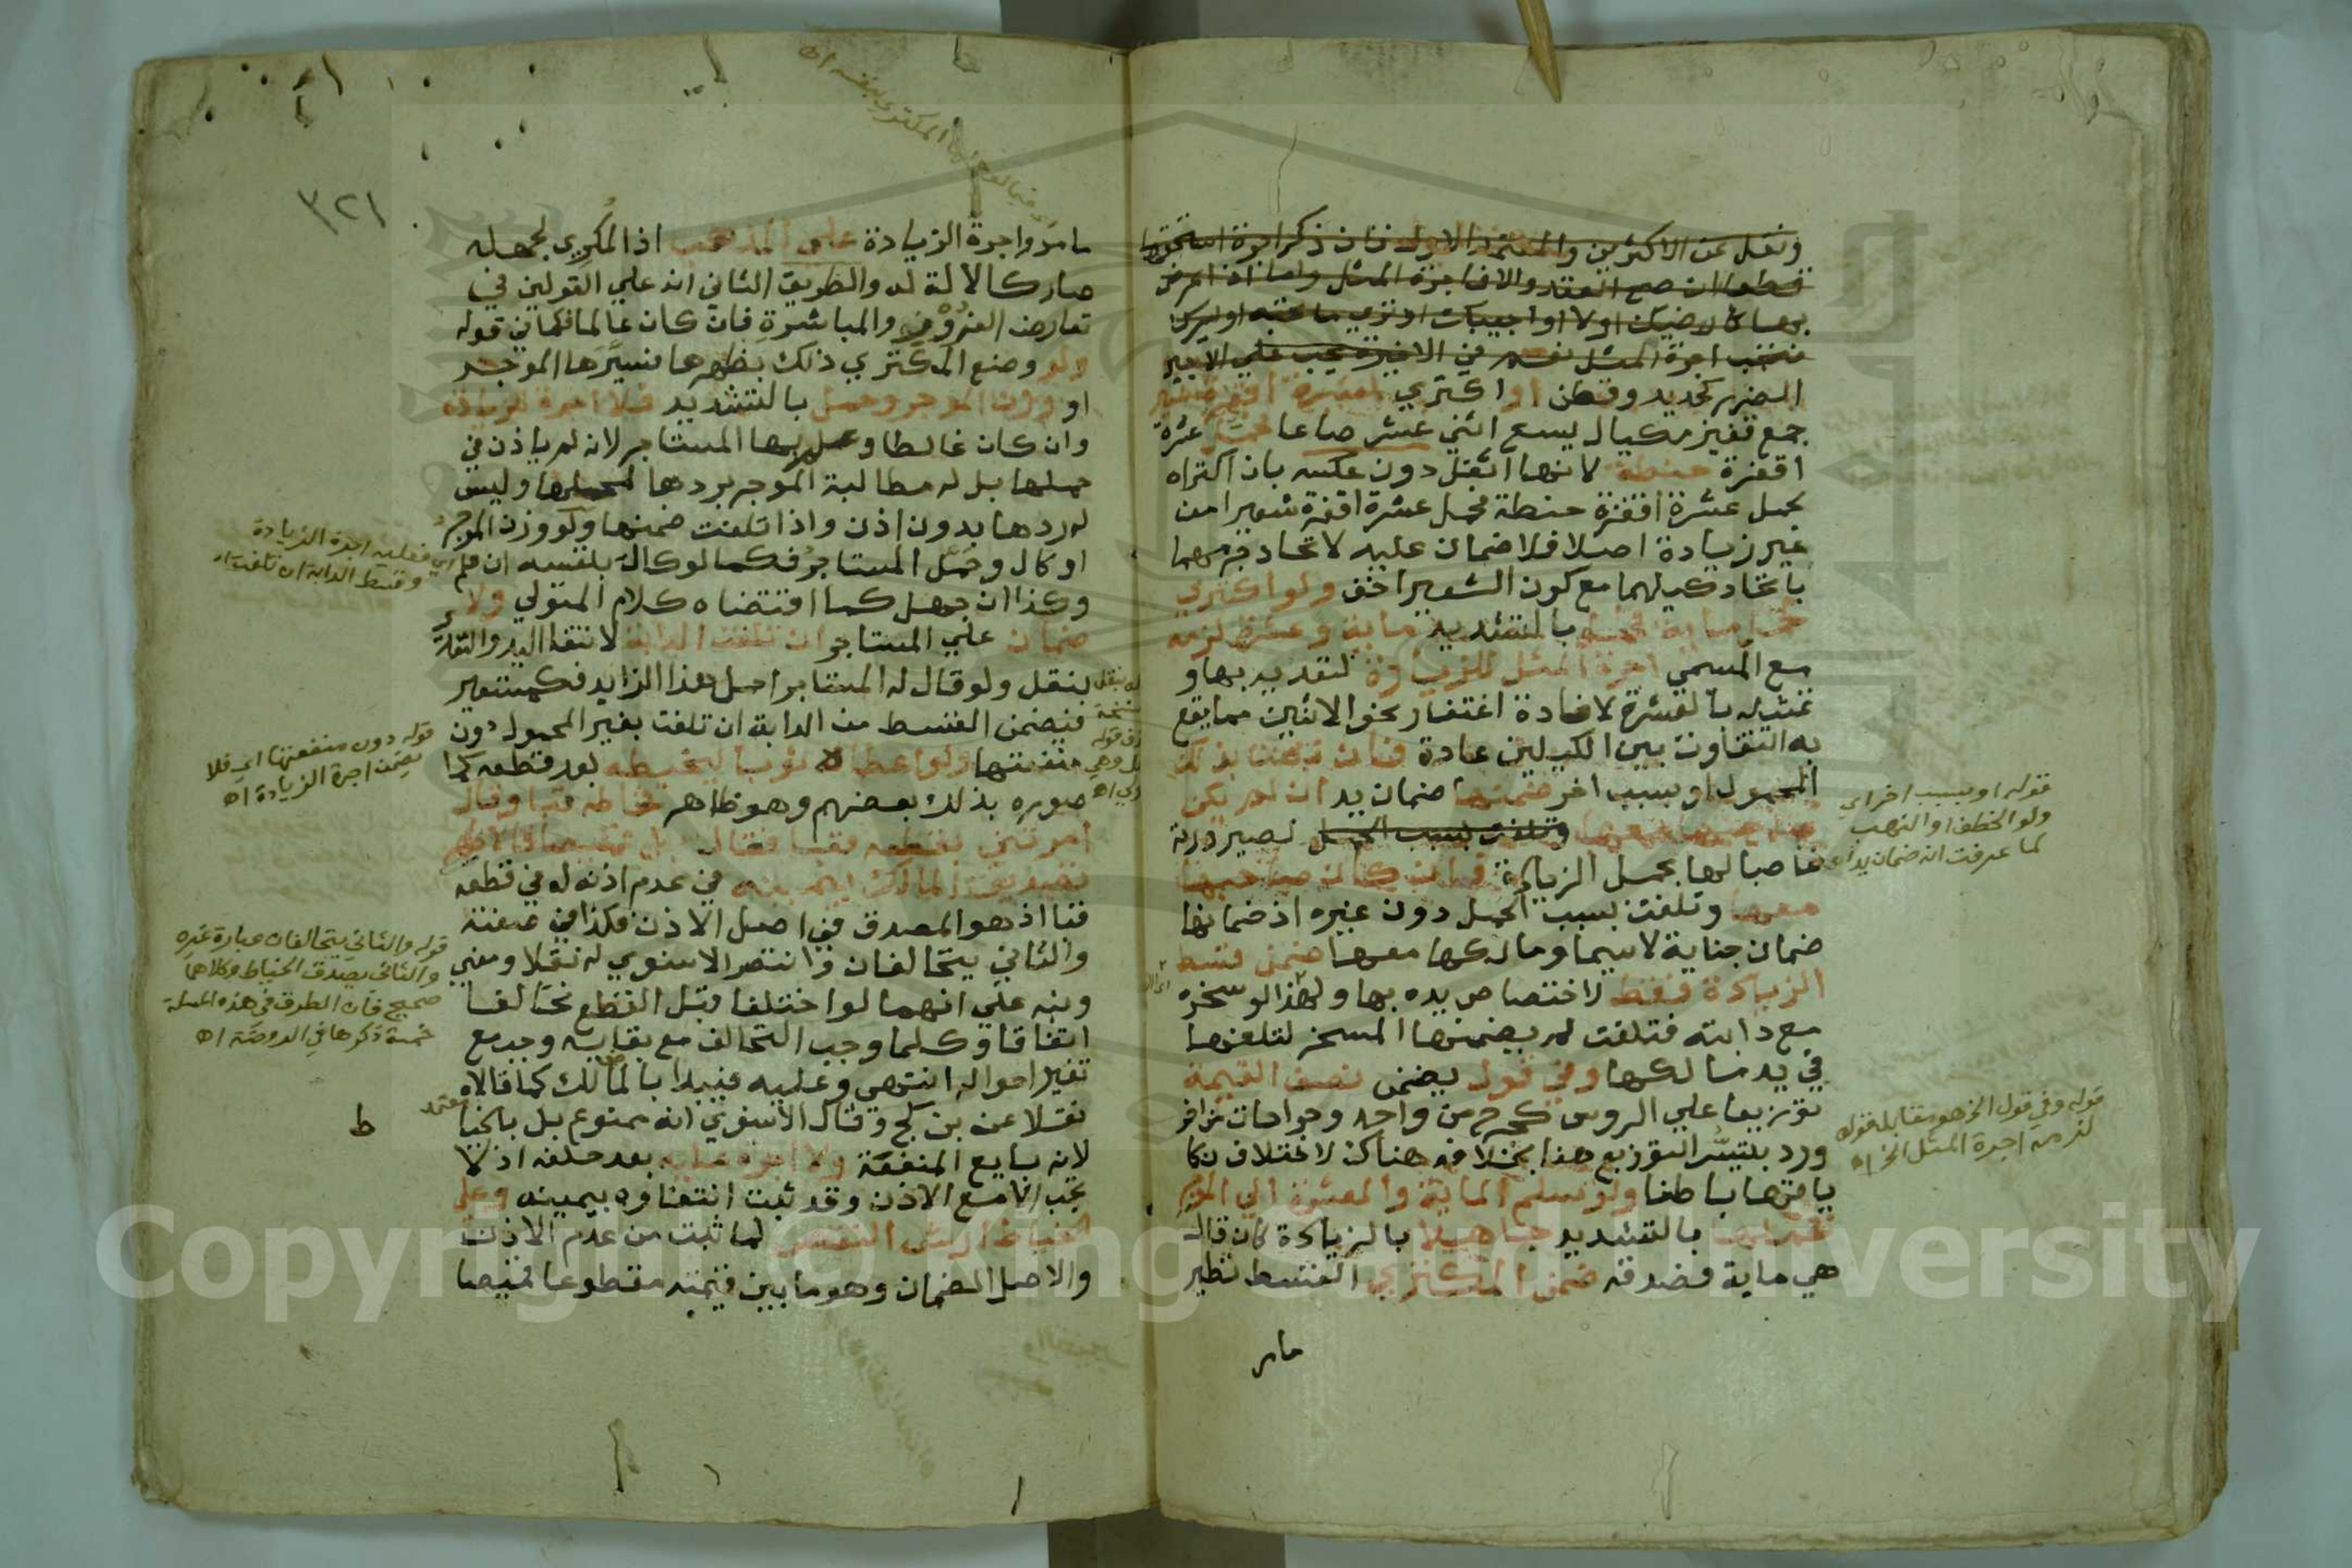 ونقل عن الاكثرين والمعتمد الاول فان ذكر اجرة استحقها
قطعا ان صح العقد والا فاجرة المثل واما اذا عرض
بها كارضيك اولا اخيبك او تري ما تحبه او يسرك
فتجب اجرة المثل نعم في الاخيرة يجب علي الاجير
الضرر كحديد وقطن او اكتري لعشرة اقفزة شعير
جمع قفيز مكيال يسع اثني عشر صاعا فحمل عشرة
اقفزة حنطة لانها اثقل دون عكسه بان اكتراه
لحمل عشرة اقفزة حنطة فحمل عشرة اقفزة شعيرا من
غير زيادة اصلا فلا ضمان عليه لاتحاد جرمهما
باتحاد كيلهما مع كون الشعير اخف ولو اكتري
لحمل ماية فحمل بالتشديد ماية وعشرة لزمه
مع المسمي اجرة المثل للزيادة لتعديه بها و
تمثيله بالعشرة لافادة اغتفار نحو الاثنين مما يقع
به التفاوت بين الكيلين عادة فان تلفت بذلك
المحمول او بسبب اخر ضمنها ضمان يد ان لم يكن
صاحبها معها وتلفت بسبب الحمل لصيرورته
غاصبا لها بحمل الزيادة فان كان صاحبها
معها وتلفت بسبب الحمل دون غيره اذ ضمانها
ضمان جناية لاسيما ومالكها معها ضمن قسط
الزيادة فقط لاختصاص يده بها ولهذا لو سخره
مع دابته فتلفت لم يضمنها المسخر لتلفها
في يد مالكها وفي قول يضمن نصف القيمة
توزيعا علي الروس كجرح من واحد وجراحات من اخر
ورد بتيسر التوزيع هذا بخلافه هناك لاختلاف نكا
ياتها باطنا ولو سلم الماية والعشرة الي المؤجر
فحملها بالتشديد جاهلا بالزيادة كان قال
هي ماية فصدقه ضمن المكتري القسط نظير
مامر
قوله او بسبب اخر اي
ولو الخطف او النهب
كما عرفت انه ضمان يد اه
قوله وفي قول الخ هو مقابل قوله
لزمه اجرة المثل الخ اه
٣٢١
مامر واجرة الزيادة علي المذهب اذ المكري لجهله
صار كالالة له والطريق الثاني انه علي القولين في
تعارض الغرور والمباشرة فان كان عالما فكما في قوله
ولو وضع المكتري ذلك بظهرها فسيرها الموجر
او وزن الموجر وحمل بالتشديد فلا اجرة للزيادة
وان كان غالطا وعلم بها المستاجر لانه لم ياذن في
حملها بل له مطالبة الموجر بردها لمحلها وليس
له ردها بدون اذن واذا تلفت ضمنها ولو وزن الموجر
او كال وحمل المستاجر فكما لو كال بنفسه ان علم
وكذا ان جهل كما اقتضاه كلام المتولي ولا
ضمان علي المستاجر ان تلفت الدابة لانتفا اليد والتعد
بنقل ولو قال له المستاجر احمل هذا الزايد فكمستعير
فيضمن القسط من الدابة ان تلفت بغير المحمول دون
منفعتها ولو اعطاه ثوبا ليخيطه بعد قطعه كما
صوره بذلك بعضهم وهو ظاهر فخاطه قبا وقال
امرتني بقطعه قبا فقال بل قميصا فالاظهر
تصديق المالك بيمينه في عدم اذنه له في قطعه
قبا اذ هو المصدق في اصل الاذن فكذا في صفته
والثاني يتحالفان وانتصر الاسنوي له نقلا ومعني
ونبه علي انهما لو اختلفا قبل القطع تحالفا
اتفاقا وكلما وجب التحالف مع بقايه وجب مع
تغير احواله انتهي وعليه فيبدا بالمالك كما قالاه
نقلا عن بن كج وقال الاسنوي انه ممنوع بل بالخيا
لانه بايع المنفعة ولا اجرة عليه بعد حلفه اذ لا
تجب الا مع الاذن وقد ثبت انتفاوه بيمينه وعلي
الخياط ارش النقص لما ثبت من عدم الاذن
والاصل الضمان وهو ما بين قيمته مقطوعا قميصا
اي فعليه اجرة الزيادة
وقسط الدابة ان تلفت اه
قوله دون منفعتها اي فلا
يضمن اجرة الزيادة اه
قوله والثاني يتحالفان عبارة غيره
والثاني يصدق الخياط وكلاهما
صحيح فان الطرق في هذه المسلة
خمسة ذكرها في الروضة اه
معتمد
ط